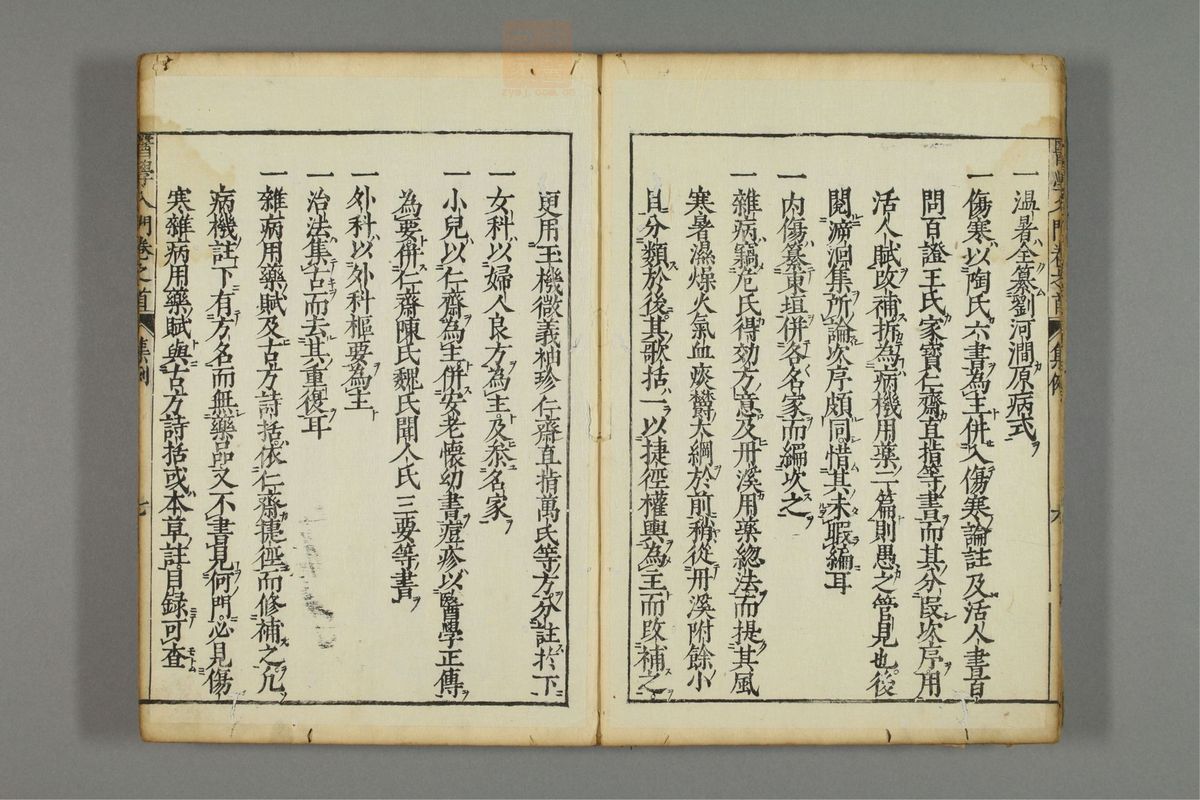 一溫暑全纂劉河澗原病式
一傷寒以陶氏六書為主併入傷寒論註及活人書百
問百證王氏家寶仁齋直指等書而其分段次序用
活人賦改補拆為病機用藥二篇則愚之管見也後
閱溯洄集所論次序頗同惜其未暇編耳
一內傷纂東垣併各名家而編次之
一雜病竊危氏得効方意及丹溪用藥總法而提其風
寒暑濕燥火氣血痰欝大綱於前稍從丹溪附餘小
且分類於後其歌括一以捷徑權輿為主而改補之
更用玉機微義袖珍仁齋直指萬氏等方分註於下
一女科以婦人良方為主及叅名家
一小兒以仁齋為主併安老懷幼書痘疹以醫學正傳
為要併仁齋陳氏魏氏聞人氏三要等書
一外科以外科樞要為主
一治法集古而去其重復耳
一雜病用藥賦及古方詩括依仁齋捷徑而修補之凡
病機註下有方名而無藥品又不書見何門必見傷
寒雜病用藥賦與古方詩括或本草註目録可查
醫學入門卷之首
集例
七